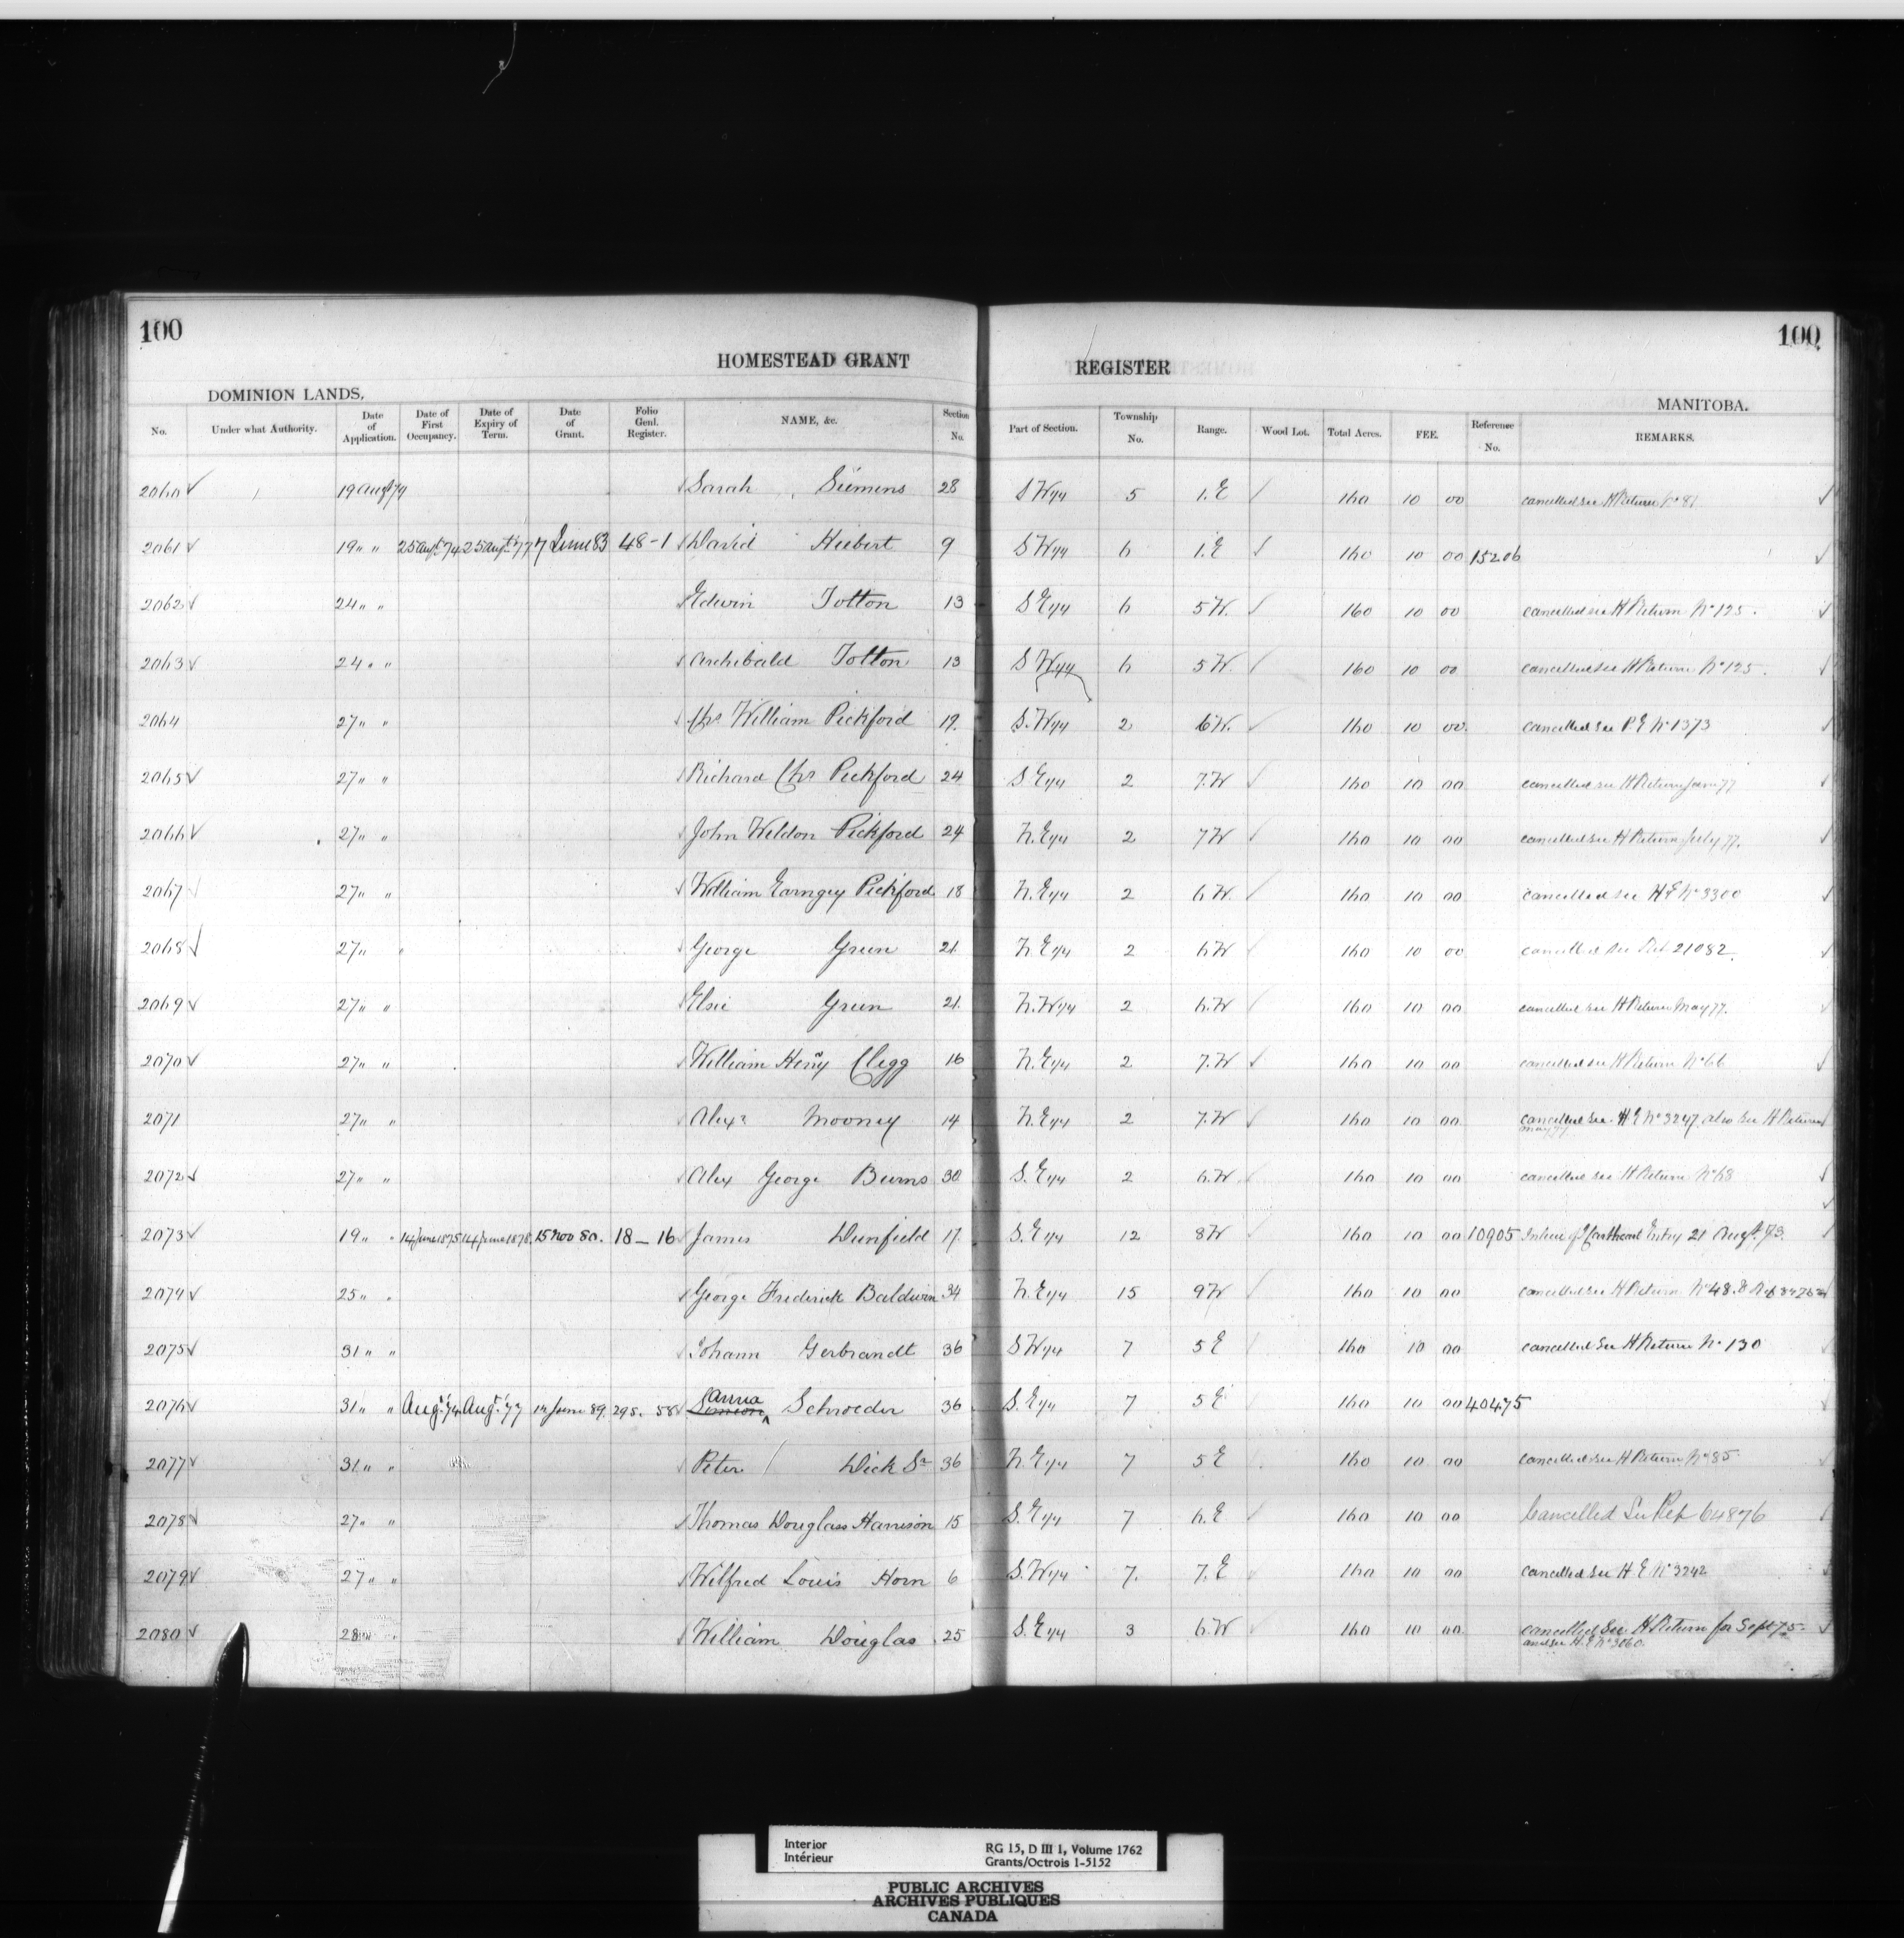 100
100
HOMESTEAD GRANT REGISTER
DOMINION LANDS.
MANITOBA.
No. Under what Authority. Date of Application. Date of First Occupancy. Date of Expiry of Term. Date of Grant. Folio Genl. Register. NAME, &c. Section No. Part of Section. Township No. Range. Wood Lot. Total Acres. FEE. Reference No. REMARKS.
2060 ✓ 19 Augt 74 Sarah Siemens 28 S W 1/4 5 1. E 160 10 00 cancelled see H Return No 81
2061 ✓ 19 " " 25 Augt 74 25 Augt 77 7 June 83 48-1 David Hiebert 9 S W 1/4 6 1. E 160 10 00 15206
2062 ✓ 24 " " Edwin Totton 13 S E 1/4 6 5 W. 160 10 00 cancelled see H Return No 125.
2063 ✓ 24 " " Archibald Totton 13 S W 1/4 6 5 W. 160 10 00 cancelled see H Return No 125.
2064 27 " " Chs William Pickford 19. S. W 1/4 2 6 W. 160 10 00. cancelled see P. E No 1373
2065 ✓ 27 " " Richard Chs Pickford 24 S E 1/4 2 7. W 160 10 00 cancelled see H Return 77
2066 ✓ 27 " " John Weldon Pickford 24 N. E 1/4 2 7 W 160 10 00 cancelled see H Return July 77.
2067 27 " " William Earngey Pickford 18 N. E 1/4 2 6 W. 160 10 00 cancelled see H E No 3300
2068 ✓ 27 " " George Green 21 N. E 1/4 2 6 W 160 10 00 cancelled see Ref. 21082.
2069 ✓ 27 " " Elsie Green 21. N. W 1/4 2 6. W 160 10 00 cancelled see H Return May 77.
2070 ✓ 27 " " William Henry Clegg 16 N. E 1/4 2 7. W 160 10 00 cancelled see H Return No 66
2071 27 " " Alexr Mooney 14 N. E 1/4 2 7. W 160 10 00 cancelled see H E No 3247. also see H Return
May 77
2072 ✓ 27 " " Alex George Burns 30. S. E 1/4 2 6. W. 160 10 00 cancelled see H Return No 68
2073 ✓ 19 " " 14 June 1875 14 June 1878. 15 Nov 80. 18-16 James Dunfield 17. S. E 1/4 12 8 W 160 10 00 10905 In lieu of Entry 21 Augt. 73.
2074 ✓ 25 " " George Frederick Baldwin 34 N. E 1/4 15 9 W 160 10 00 cancelled see H Return No 48. & Ref
2075 ✓ 31 " " Johann Gerbrandt 36 S W 1/4 7 5 E 160 10 00 cancelled see H Return No 130
2076 ✓ 31 " " Augt. 74 Augt. 77 June 89. 298. 58 Anna Schroeder 36 S. E 1/4 7 5 E 160 10 00 40475
2077 ✓ 31 " " Peter Dick Sr 36 N. E 1/4 7 5 E 160 10 00 cancelled see H Return No 85
2078 ✓ 27 " " Thomas Douglass Harrison 15 S. E 1/4 7 6. E 160 10 00 Cancelled See Ref 64876
2079 ✓ 27 " " Wilfred Louis Horn 6 S. W 1/4 7. 7. E 160 10 00 cancelled see H E No 3242
2080 ✓ 28 " " William Douglas 25 S. E 1/4 3 6. W 160 10 00 cancelled see H Return for Sept 75.
and see H. E No 3060.
Interior
Intérieur
RG 15, D III 1, Volume 1762
Grants/Octrois 1-5152
PUBLIC ARCHIVES
ARCHIVES PUBLIQUES
CANADA